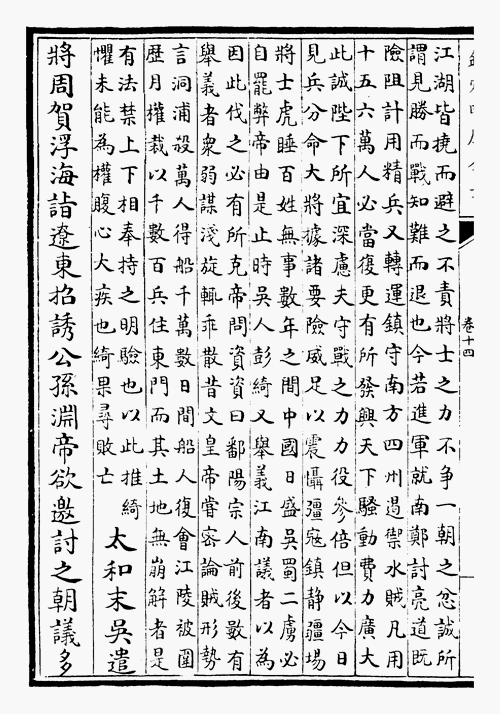 江湖皆撓而避之不責將士之力不争一朝之忿誠所
謂見勝而戰知難而退也今若進軍就南鄭討亮道既
險阻計用精兵又轉運鎮守南方四州遏禦水賊凡用
十五六萬人必當復更有所發興天下騷動費力廣大
此誠陛下所宜深慮夫守戰之力力役參倍但以今日
見兵分命大將據諸要險威足以震懾彊寇鎮静疆埸
將士虎睡百姓無事數年之間中國日盛吳蜀二虜必
自罷弊帝由是止時吳人彭綺又舉義江南議者以為
因此伐之必有所克帝問資資曰鄱陽宗人前後數有
舉義者衆弱謀淺旋輒乖散昔文皇帝嘗密論賊形勢
言洞浦殺萬人得船千萬數日間船人復會江陵被圍
歷月權裁以千數百兵住東門而其土地無崩解者是
有法禁上下相奉持之明驗也以此推綺
懼未能為權腹心大疾也綺果尋敗亡
太和末吳遣
將周賀浮海詣遼東招誘公孫淵帝欲邀討之朝議多
卷十四